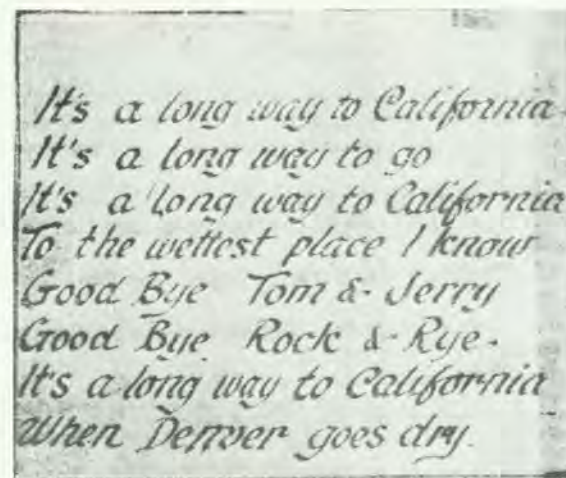 It's a long way to California.
It's a long way to go
It's a long way to California
To the wettest place I know
Good Bye Tom & Jerry
Good Bye Rock & Rye.
It's a long way to California
When Denver goes dry.